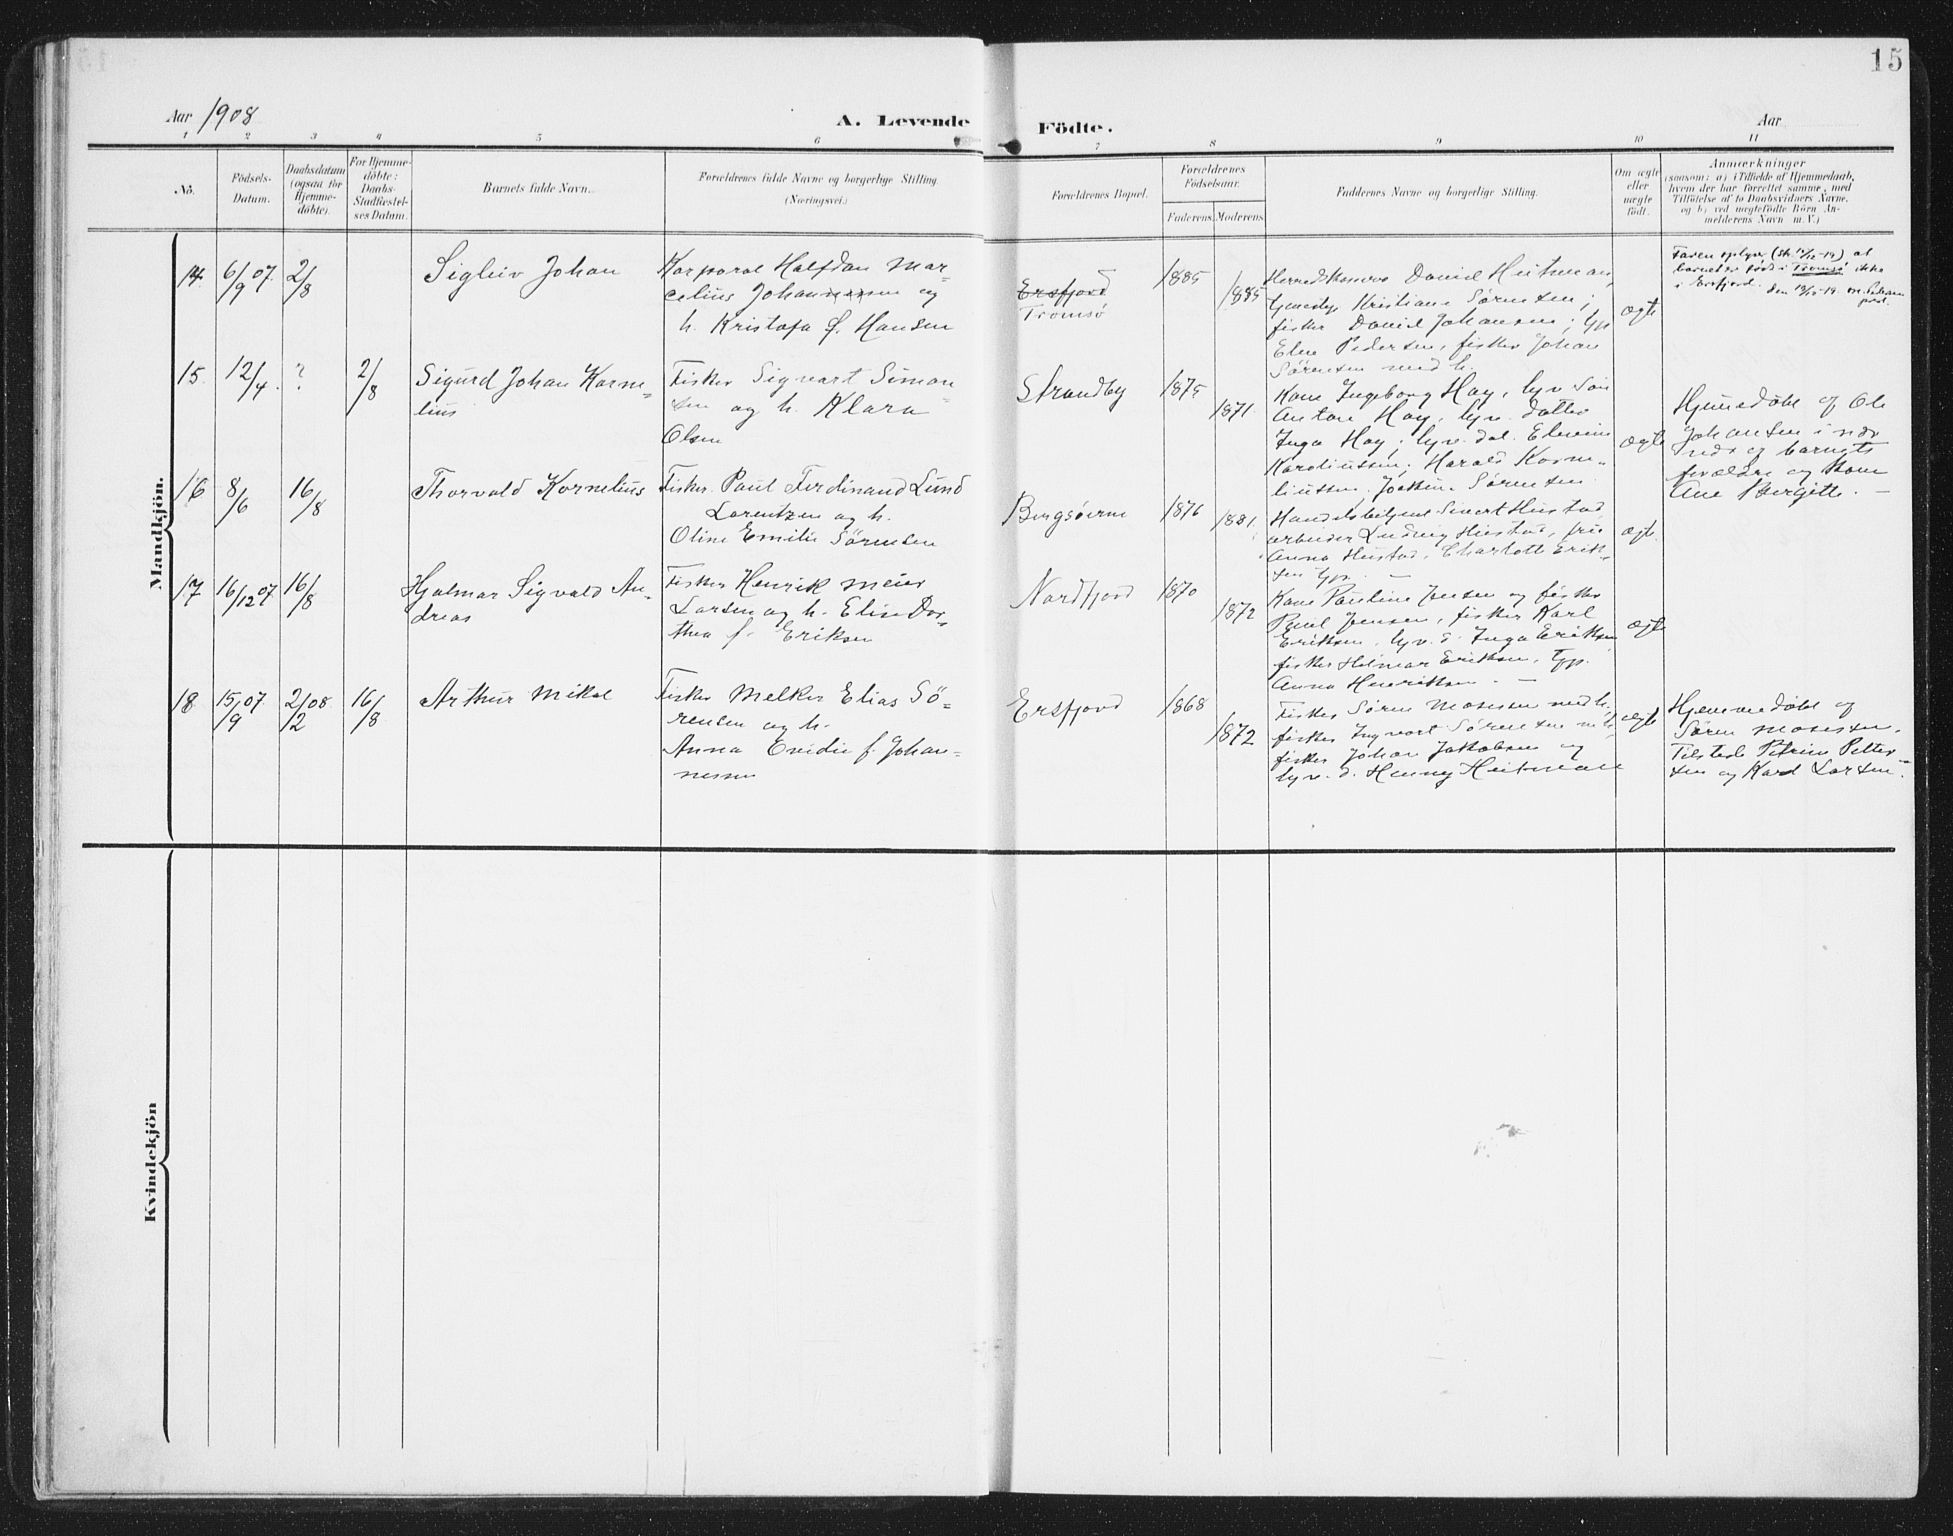 15
Aar 1908
A. Levende Födte.
Aar
1 2 3 4 5 6 7 8 9 10 11
No.
Födsels-
Datum.
Daabsdatum
(ogsaa for
Hjemme-
døbte).
For Hjemme-
döbte:
Daabs-
Stadfæstel-
ses Datum.
Barnets fulde Navn.
Forældrenes fulde Navne og borgerlige Stilling.
(Næringsvei.)
Forældrenes Bopæl.
Forældrenes
Födselsaar.
Faderens
Moderens
Faddernes Navne og borgerlige Stilling.
Om ægte
eller
uægte
født.
Anmærkninger
(saasom: a) i Tilfælde af Hjemmedaab,
hvem der har forrettet samme, med
Tilföielse af to Daabsvidners Navne,
og b) ved uægtefødte Börn An-
melderens Navn m. V.)
Mandkjön.
14. 6/9 07. 2/8
Sigleiv Johan
Korporal Halfdan Mar-
celius Johannesen og
h. Kristofa f. Hansen
Ersfjord
Tromsö
1885
1885
Daniel Heitman,
Kristiane Sørensen;
fisker Daniel Johansen; tjp.
Elen Pedersen, fisker Johan
Sörensen med h.
ægte
Faren oplyser at
barnet er født i Tromsö ikke
i Ersfjord.
15. 12/4. ? 2/8
Sigurd Johan Korne-
lius
Fisker Sigvart Simon-
sen og h. Klara
Olsen
Strandby
1875
1871.
Kone Ingeborg Hay, Søn
Anton Hay, datter
Inga Hay,
Harald Korne-
liussen, Sørensen
ægte
Hjemmedøbt af Ole
Johansen i nær-
barnets
forældre og Kone
Ane Bergitte. —
16 8/6 16/8
Thorvald Kornelius
Fisker Paul Ferdinand Lund
Lorentzen og h.
Oline Emilie Sörensen
Bergsöerne
1876
1881.
Sivert Hustad,
arbeider Ludvig Hustad, fru
Anna Hustad, Charlotte Erik-
sen tjp. —
ægt.
17 16/12 07 16/8
Hjalmar Sigvald An-
dreas
Fisker Henrik Meier
Larsen og h. Elise Dor-
thea f. Eriksen
Nordfjord
1870
1872
Kone Pauline Jensen og fisker
Paul Jensen, fisker Karl
Eriksen, Inga Eriksen
fisker Hilmar Eriksen, tjp.
Anna Henriksen. —
ægte
18 15/9 07 2/2 08 16/8
Arthur Mikal
Fisker Melker Elias Sö-
rensen og h.
Anna Evidie f. Johan-
nesen
Ersfjord
1868
1872
Fisker Sören Mosesen med h.
fisker Ingvart Sörensen
fisker Johan Jakobsen og
Henny Heitman
ægte
Hjemmedøbt af
Sören Mosesen.
Tilsted Petrine Petter-
sen og Karl Larsen.
Kvindekjön